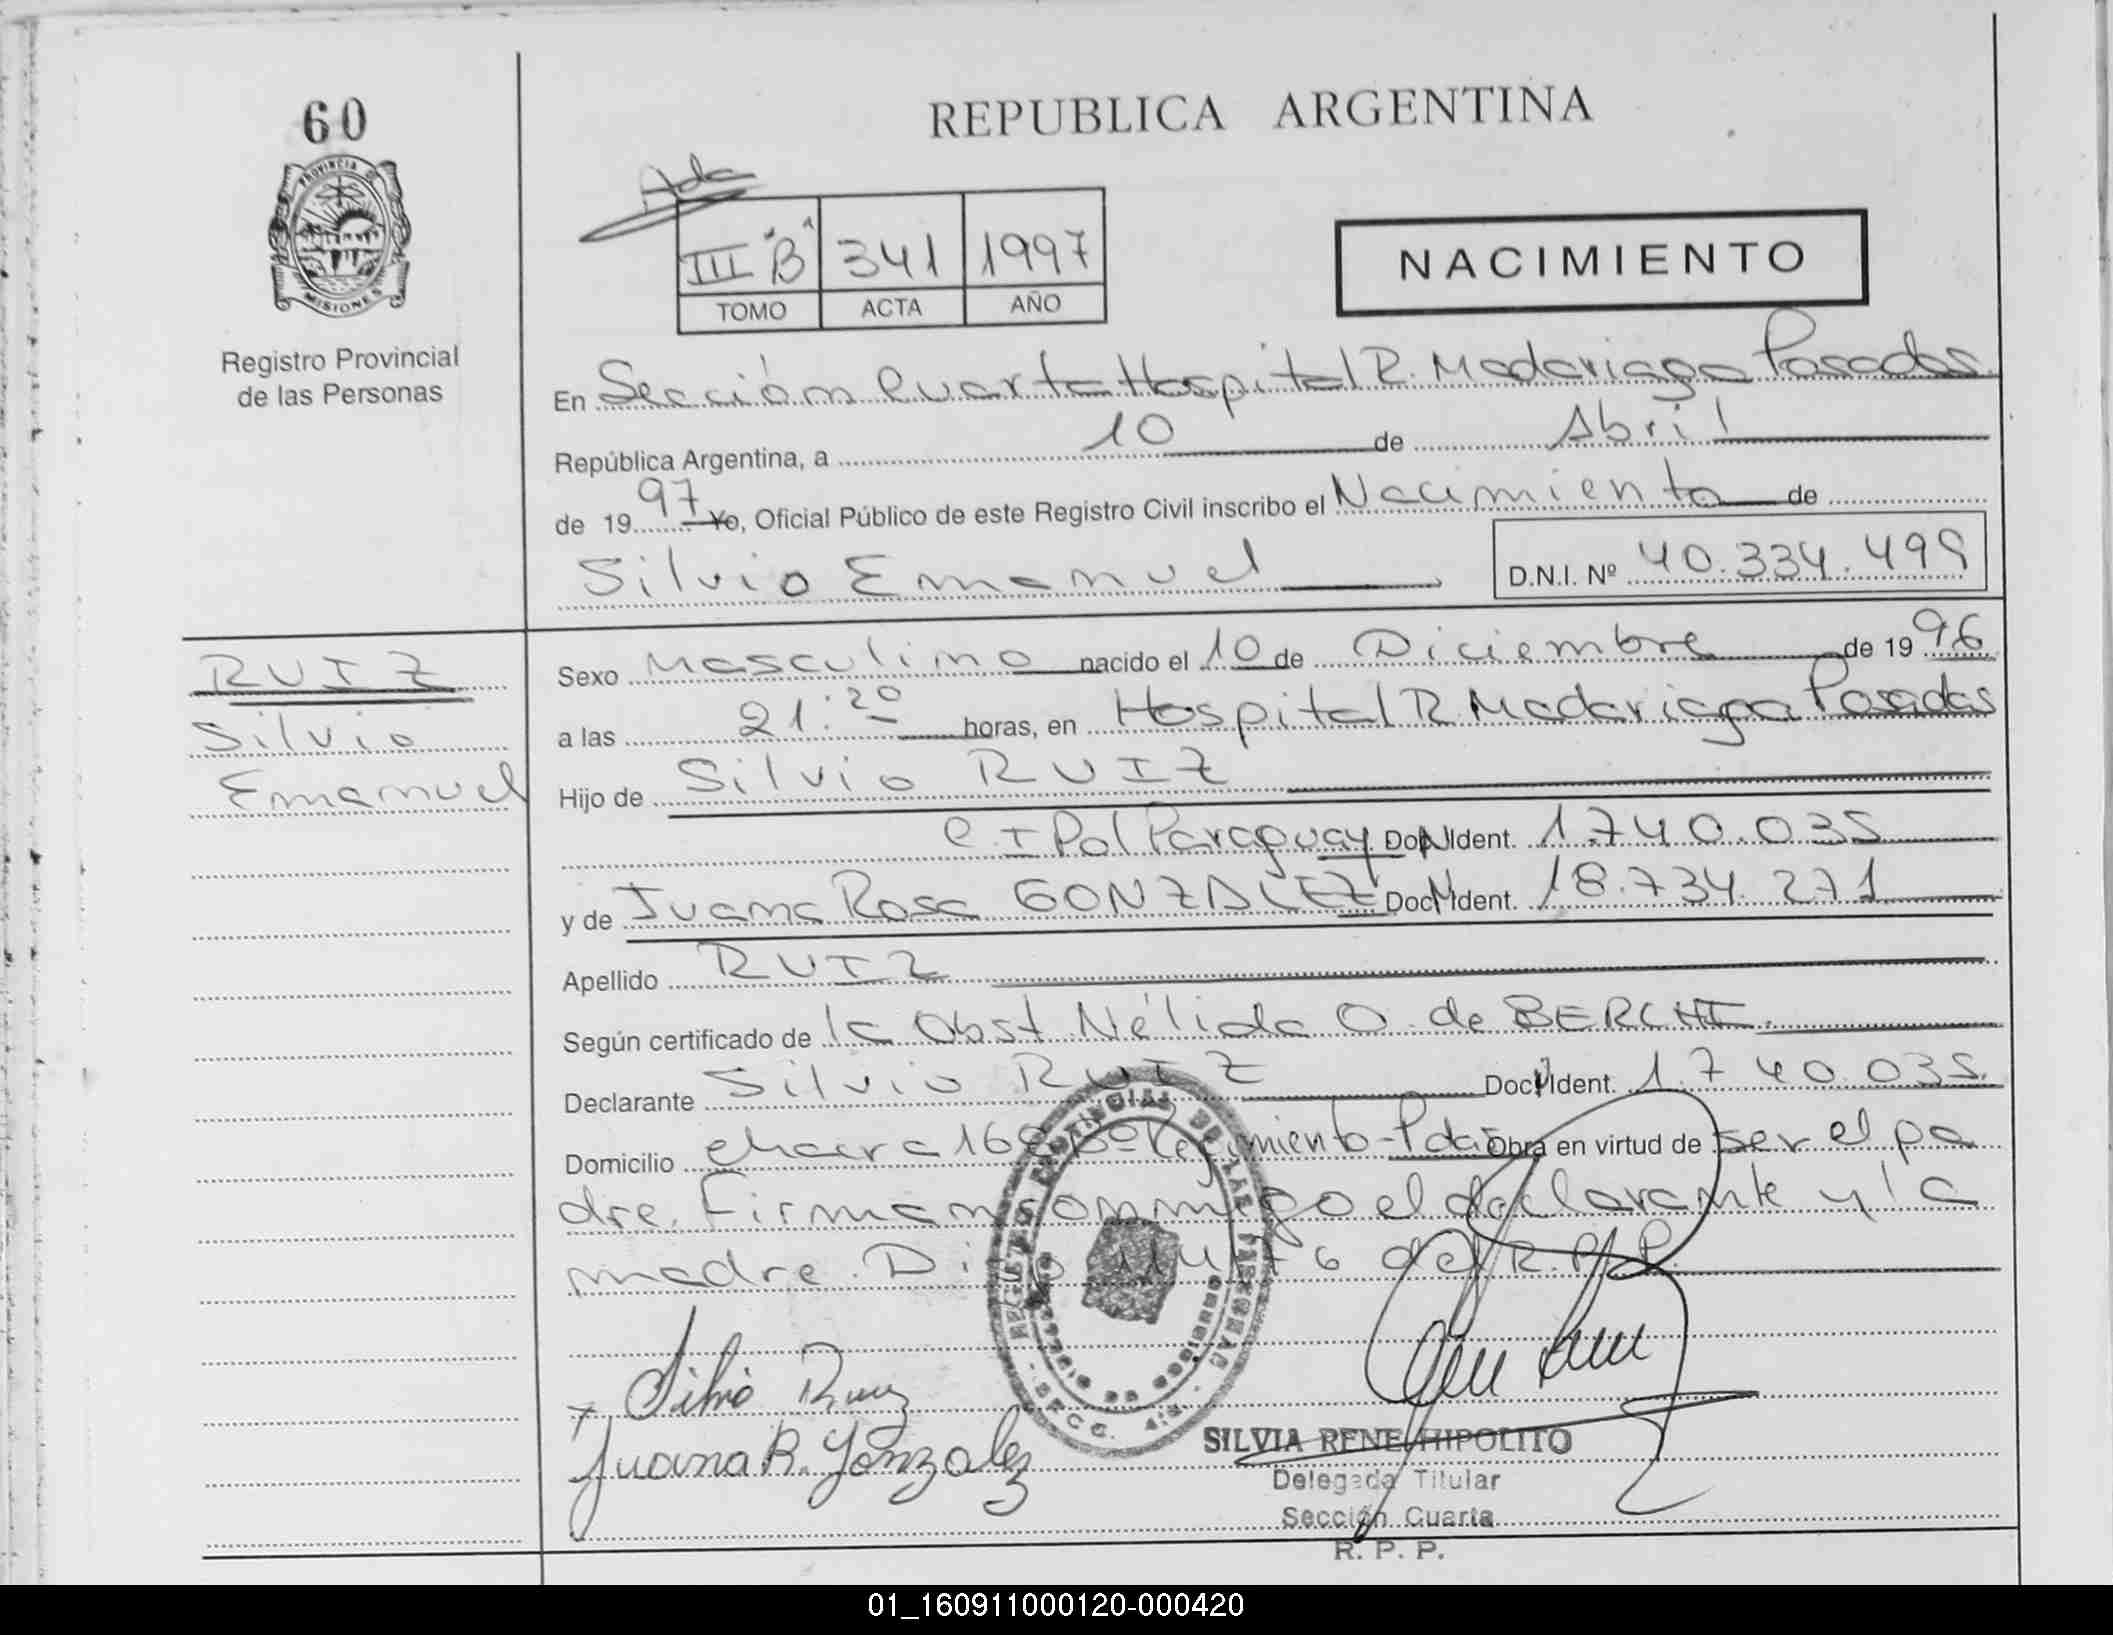 60
REPUBLICA ARGENTINA
PROVINCIA D
MISIONES
Registro Provincial
de las Personas
Ada
III "B" 341 1997
TOMO ACTA AÑO
NACIMIENTO
En Sección Cuarta Hospital R. Madariaga Posadas
República Argentina, a 10 de Abril
de 1997 Yo, Oficial Público de este Registro Civil inscribo el Nacimiento de
Silvio Emanuel D.N.I. Nº 40.334.499
RUIZ
Silvio
Emanuel
Sexo Masculino nacido el 10 de Diciembre de 1996
a las 21:20 horas, en Hospital R. Madariaga Posadas
Hijo de Silvio RUIZ
C.I Pol Paraguay Doc Ident. 1.740.035
y de Juana Rosa GONZALEZ Doc Ident. 18.734.271
Apellido RUIZ
Según certificado de la Obst Nélida O. de BERCHI.
Declarante Silvio RUIZ Doc Ident. 1.740.035.
Domicilio chacra 168 Obra en virtud de ser el pa
dre. Firman conmigo el declarante y la
madre. R.P.P.
Silvio Ruiz
Juana R. Gonzalez
SILVIA RENE HIPOLITO
Delegada Titular
Sección Cuarta
R. P. P.
01_160911000120-000420